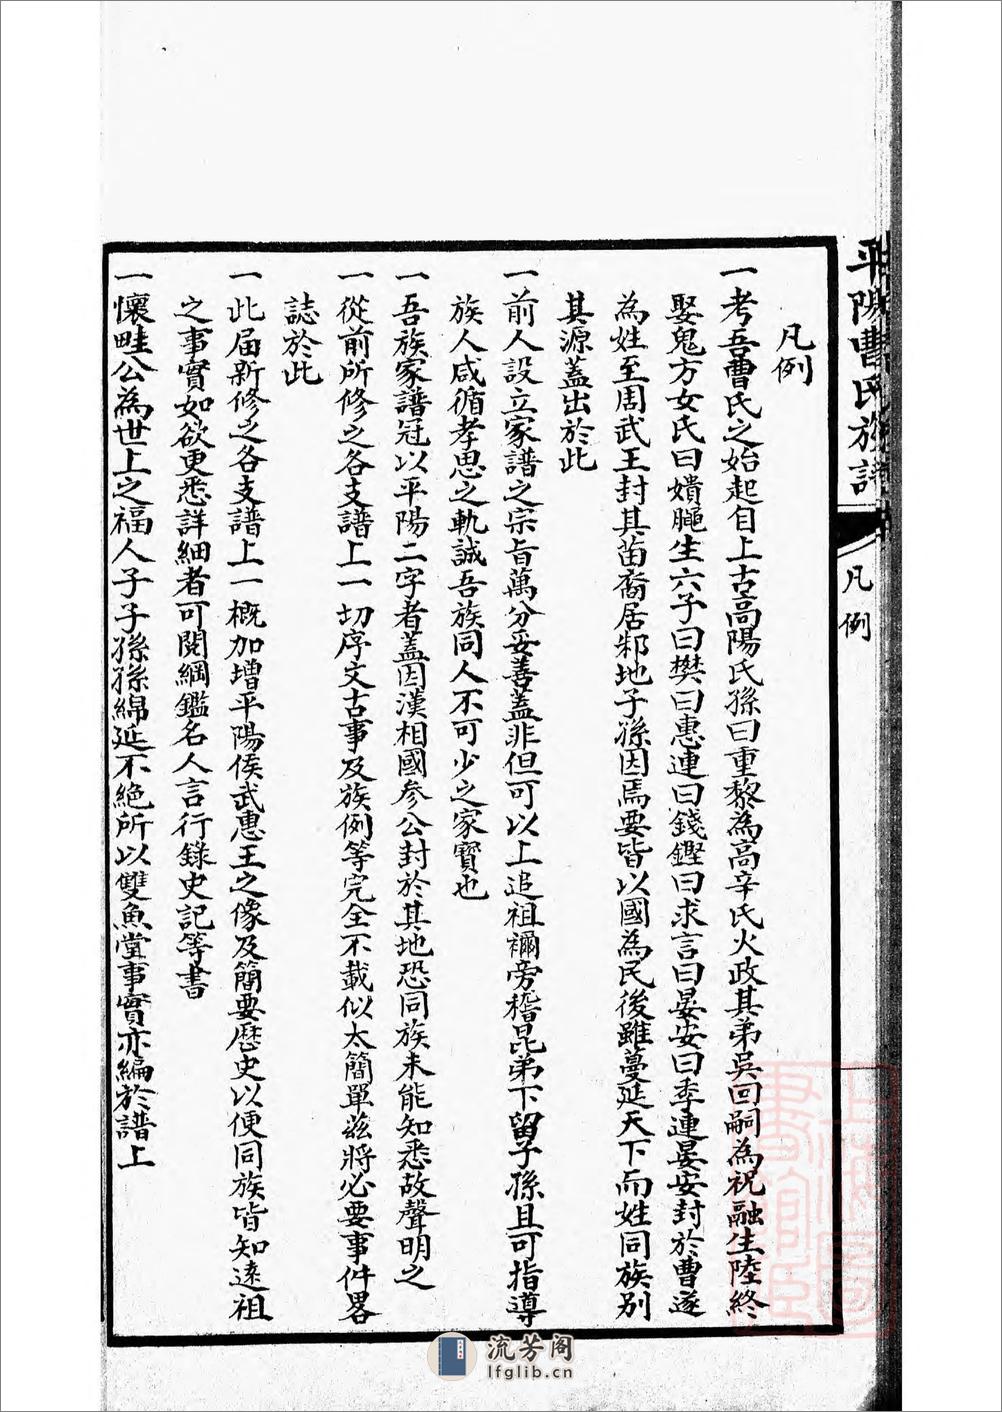 平陽曹氏族譜
凡例
凡例
一考吾曹氏之始起自上古高陽氏孫曰重黎為高辛氏火政其弟吳回嗣為祝融生陸終
娶鬼方女氏曰嬇腄生六子曰樊曰惠連曰錢鏗曰求言曰晏安曰季連晏安封於曹遂
為姓至周武王封其苗裔居邾地子孫因焉要皆以國為民後雖蔓延天下而姓同族別
其源蓋出於此
一前人設立家譜之宗旨萬分妥善蓋非但可以上追祖禰旁稽昆弟下留子孫且可指導
族人咸循孝思之軌誠吾族同人不可少之家寶也
一吾族家譜冠以平陽二字者蓋因漢相國參公封於其地恐同族未能知悉故聲明之
一從前所修之各支譜上一切序文古事及族例等完全不載似太簡單茲將必要事件畧
誌於此
一此届新修之各支譜上一概加增平陽侯武惠王之像及簡要歷史以便同族皆知遠祖
之事實如欲更悉詳細者可閱綱鑑名人言行錄史記等書
一懷畦公為世上之福人子子孫孫綿延不絕所以雙魚堂事實亦編於譜上
上海圖書館藏
流芳阁
lfglib.cn